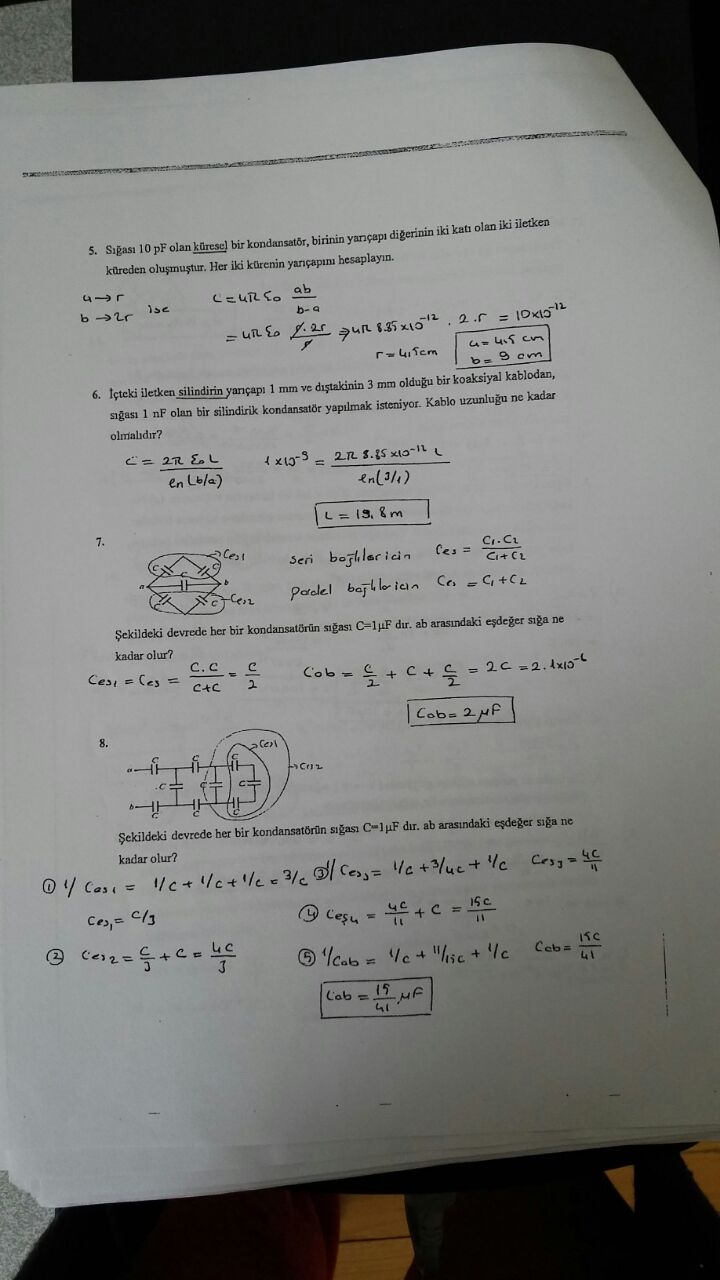 5. Sığası 10 pF olan küresel bir kondansatör, birinin yarıçapı diğerinin iki katı olan iki iletken
küreden oluşmuştur. Her iki kürenin yarıçapını hesaplayın.
a → r
b → 2r ise
C = 4π ε0 ab/b-a
= 4π ε0 r. 2r/r ⇒ 4π 8.85 x10^-12 . 2.r = 10x10^-12
r = 4,5 cm
a = 4,5 cm
b = 9 cm
6. İçteki iletken silindirin yarıçapı 1 mm ve dıştakinin 3 mm olduğu bir koaksiyal kablodan,
sığası 1 nF olan bir silindirik kondansatör yapılmak isteniyor. Kablo uzunluğu ne kadar
olmalıdır?
C = 2π ε0 L / ln(b/a)
1 x10^-9 = 2π 8.85 x10^-12 L / ln(3/1)
L = 19.8 m
7.
Ceş1
C C
a C b
C C
Ceş2
seri bağlılar için Ceş = C1.C2/C1+C2
paralel bağlılar için Ceş = C1 + C2
Şekildeki devrede her bir kondansatörün sığası C=1μF dır. ab arasındaki eşdeğer sığa ne
kadar olur?
Ceş1 = Ceş = C.C/C+C = C/2
Cab = C/2 + C + C/2 = 2C = 2.1x10^-6
Cab = 2 μF
8.
a C C C Ceş1
C C C Ceş2
b C C C
Şekildeki devrede her bir kondansatörün sığası C=1μF dır. ab arasındaki eşdeğer sığa ne
kadar olur?
① 1/Ceş1 = 1/C + 1/C + 1/C = 3/C
Ceş1 = C/3
② Ceş2 = C/3 + C = 4C/3
③ 1/Ceş3 = 1/C + 3/4C + 1/C Ceş3 = 4C/11
④ Ceş4 = 4C/11 + C = 15C/11
⑤ 1/Cab = 1/C + 11/15C + 1/C Cab = 15C/41
Cab = 15/41 μF